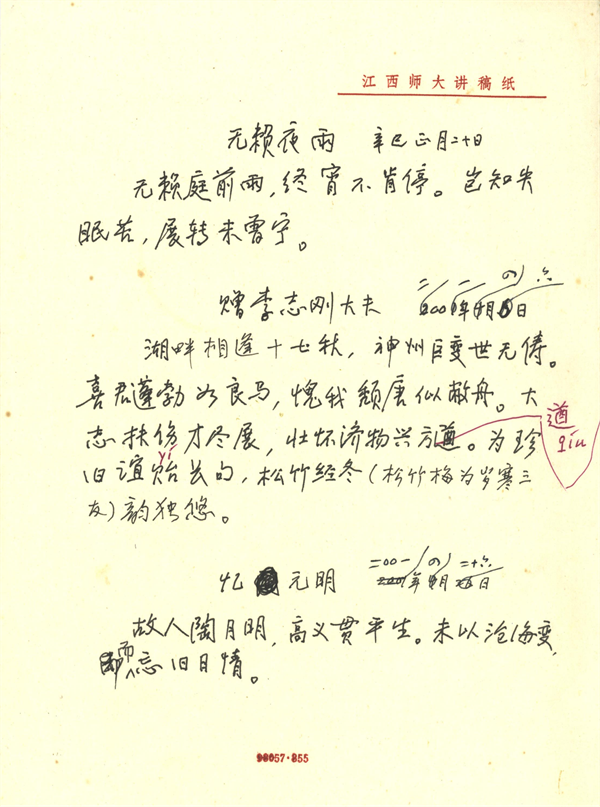 江西师大讲稿纸
无赖夜雨 辛巳正月二十日
无赖庭前雨,终宵不肯停。岂知失
眠苦,展转未曾宁。
二 一 四 六
赠李志刚大夫 2001年4月6日
湖畔相逢十七秋,神州巨变世无俦。
喜君蓬勃如良马,愧我颓唐似敝舟。大
志扶伤才尽展,壮怀济物兴方遒。为珍
遒
qiú
yí
旧谊贻长句,松竹经冬(松竹梅为岁寒三
友)韵独悠。
二00一 四 二十六
忆元明 2001年4月 日
故人陶月明,高义贯平生。未以沧海变,
而忘旧日情。
90057·855